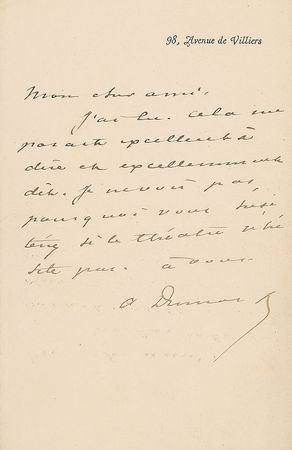 98, Avenue de Villiers
Mon cher ami,
J'ai lu. Cela me
parait excellent à
dire et excellemment
dit. Je ne vois pas
pourquoi vous hési
teriez si le théâtre n'hé
site pas. à vous.
A Dumas f